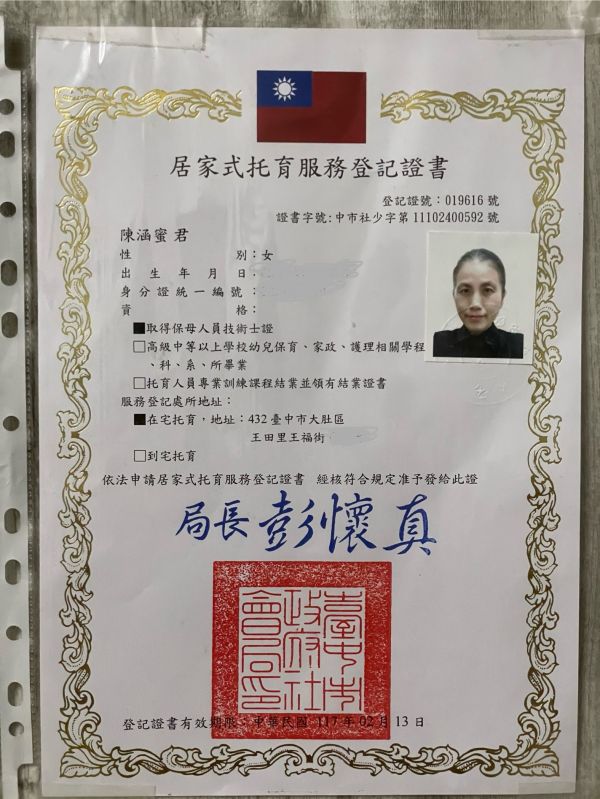 居家式托育服務登記證書
登記證號：019616 號
證書字號：中市社少字第 11102400592 號
陳涵蜜 君
性別：女
出生年月日：
身分證統一編號：
資格：
■取得保母人員技術士證
□高級中等以上學校幼兒保育、家政、護理相關學程
、科、系、所畢業
□托育人員專業訓練課程結業並領有結業證書
服務登記處所地址：
■在宅托育，地址：432 臺中市大肚區
王田里王福街
□到宅托育
依法申請居家式托育服務登記證書 經核符合規定准予發給此證
局長彭懷真
臺中市政府社會局印
登記證書有效期限：中華民國 117 年 02 月 13 日